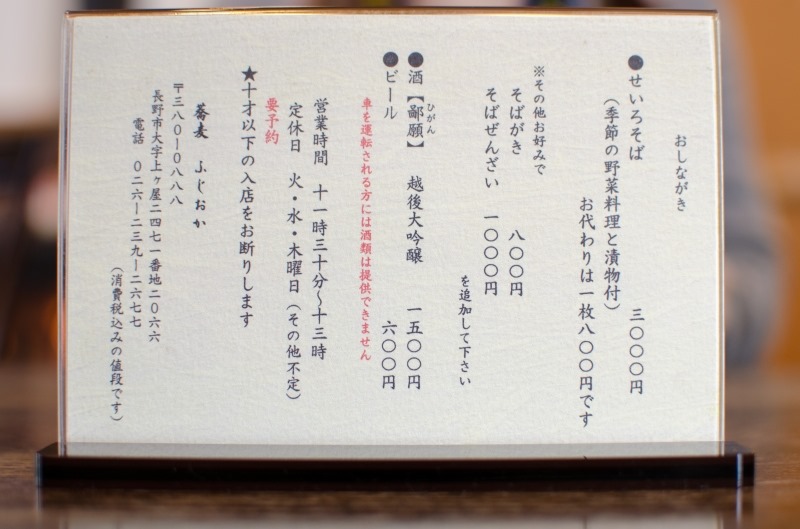 おしながき
●せいろそば 三〇〇〇円
(季節の野菜料理と漬物付)
お代わりは一枚八〇〇円です
※その他お好みで
そばがき 八〇〇円
そばぜんざい 一〇〇〇円
を追加して下さい
●酒【鄙願】 越後大吟醸 一五〇〇円
ひがん
●ビール 六〇〇円
車を運転される方には酒類は提供できません
営業時間 十一時三十分〜十三時
定休日 火・水・木曜日(その他不定)
要予約
★十才以下の入店をお断りします
蕎麦 ふじおか
〒三八〇ー〇八八八
長野市大字上ヶ屋二四七一番地二〇六六
電話 〇二六ー二三九ー二六七七
(消費税込みの値段です)